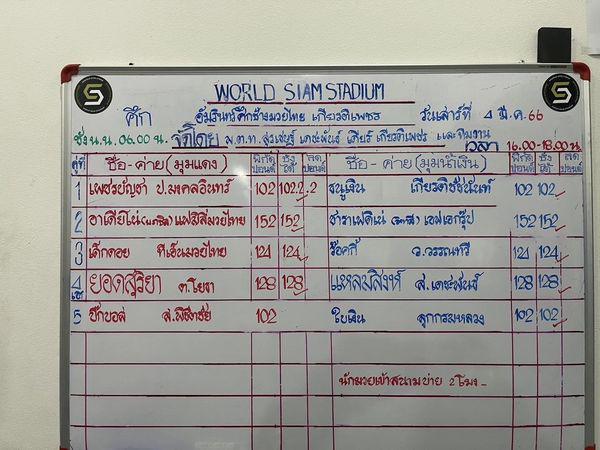 WORLD SIAM STADIUM
ศึก อัมรินทร์ศึกช้างมวยไทย เกียรติเพชร วันเสาร์ที่ 4 มี.ค. 66
ชั่ง น.น. 06.00 น. จัดโดย พ.ต.ท. สุรเชษฐ์ เตชะพันธ์ เสียร์ เกียรติเพชร และทีมงาน
เวลา 16.00-18.00 น.
คู่ที่ ชื่อ-ค่าย (มุมแดง) พิกัดปอนด์ ชั่งได้ ลดปอนด์ ชื่อ-ค่าย (มุมน้ำเงิน) พิกัดปอนด์ ชั่งได้ ลดปอนด์
1 เพชรบัญชา ป.มงคลอินทร์ 102 102.2 .2 ธนูเงิน เกียรติชัชนันท์ 102 102
2 แฟมิลี่มวยไทย 152 152 เอฟเอกรุ๊ป 152 152
3 เด็กดอย ทีเอ็นมวยไทย 124 124 ร็อคกี้ อ.วรรณทวี 124 124
4 เอก ยอดสุริยา ต.โยธา 128 128 แหลมสิงห์ ส.เดชะพันธ์ 128 128
5 บิ๊กบอส 102 ใบเงิน ลูกกรมหลวง 102 102
นักมวยเข้าสนามบ่าย 2 โมง